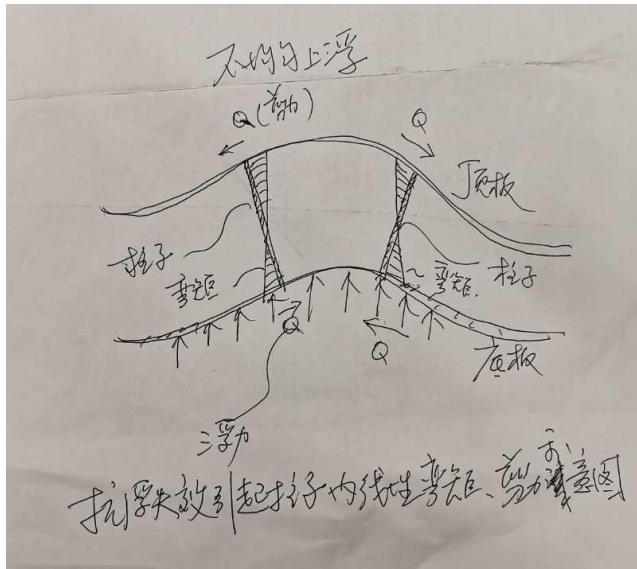 不均匀上浮
Q(剪力)
Q
顶板
柱子
柱子
弯矩
弯矩
Q
Q
底板
浮力
抗浮失效引起柱子内线性弯矩、剪力示意图